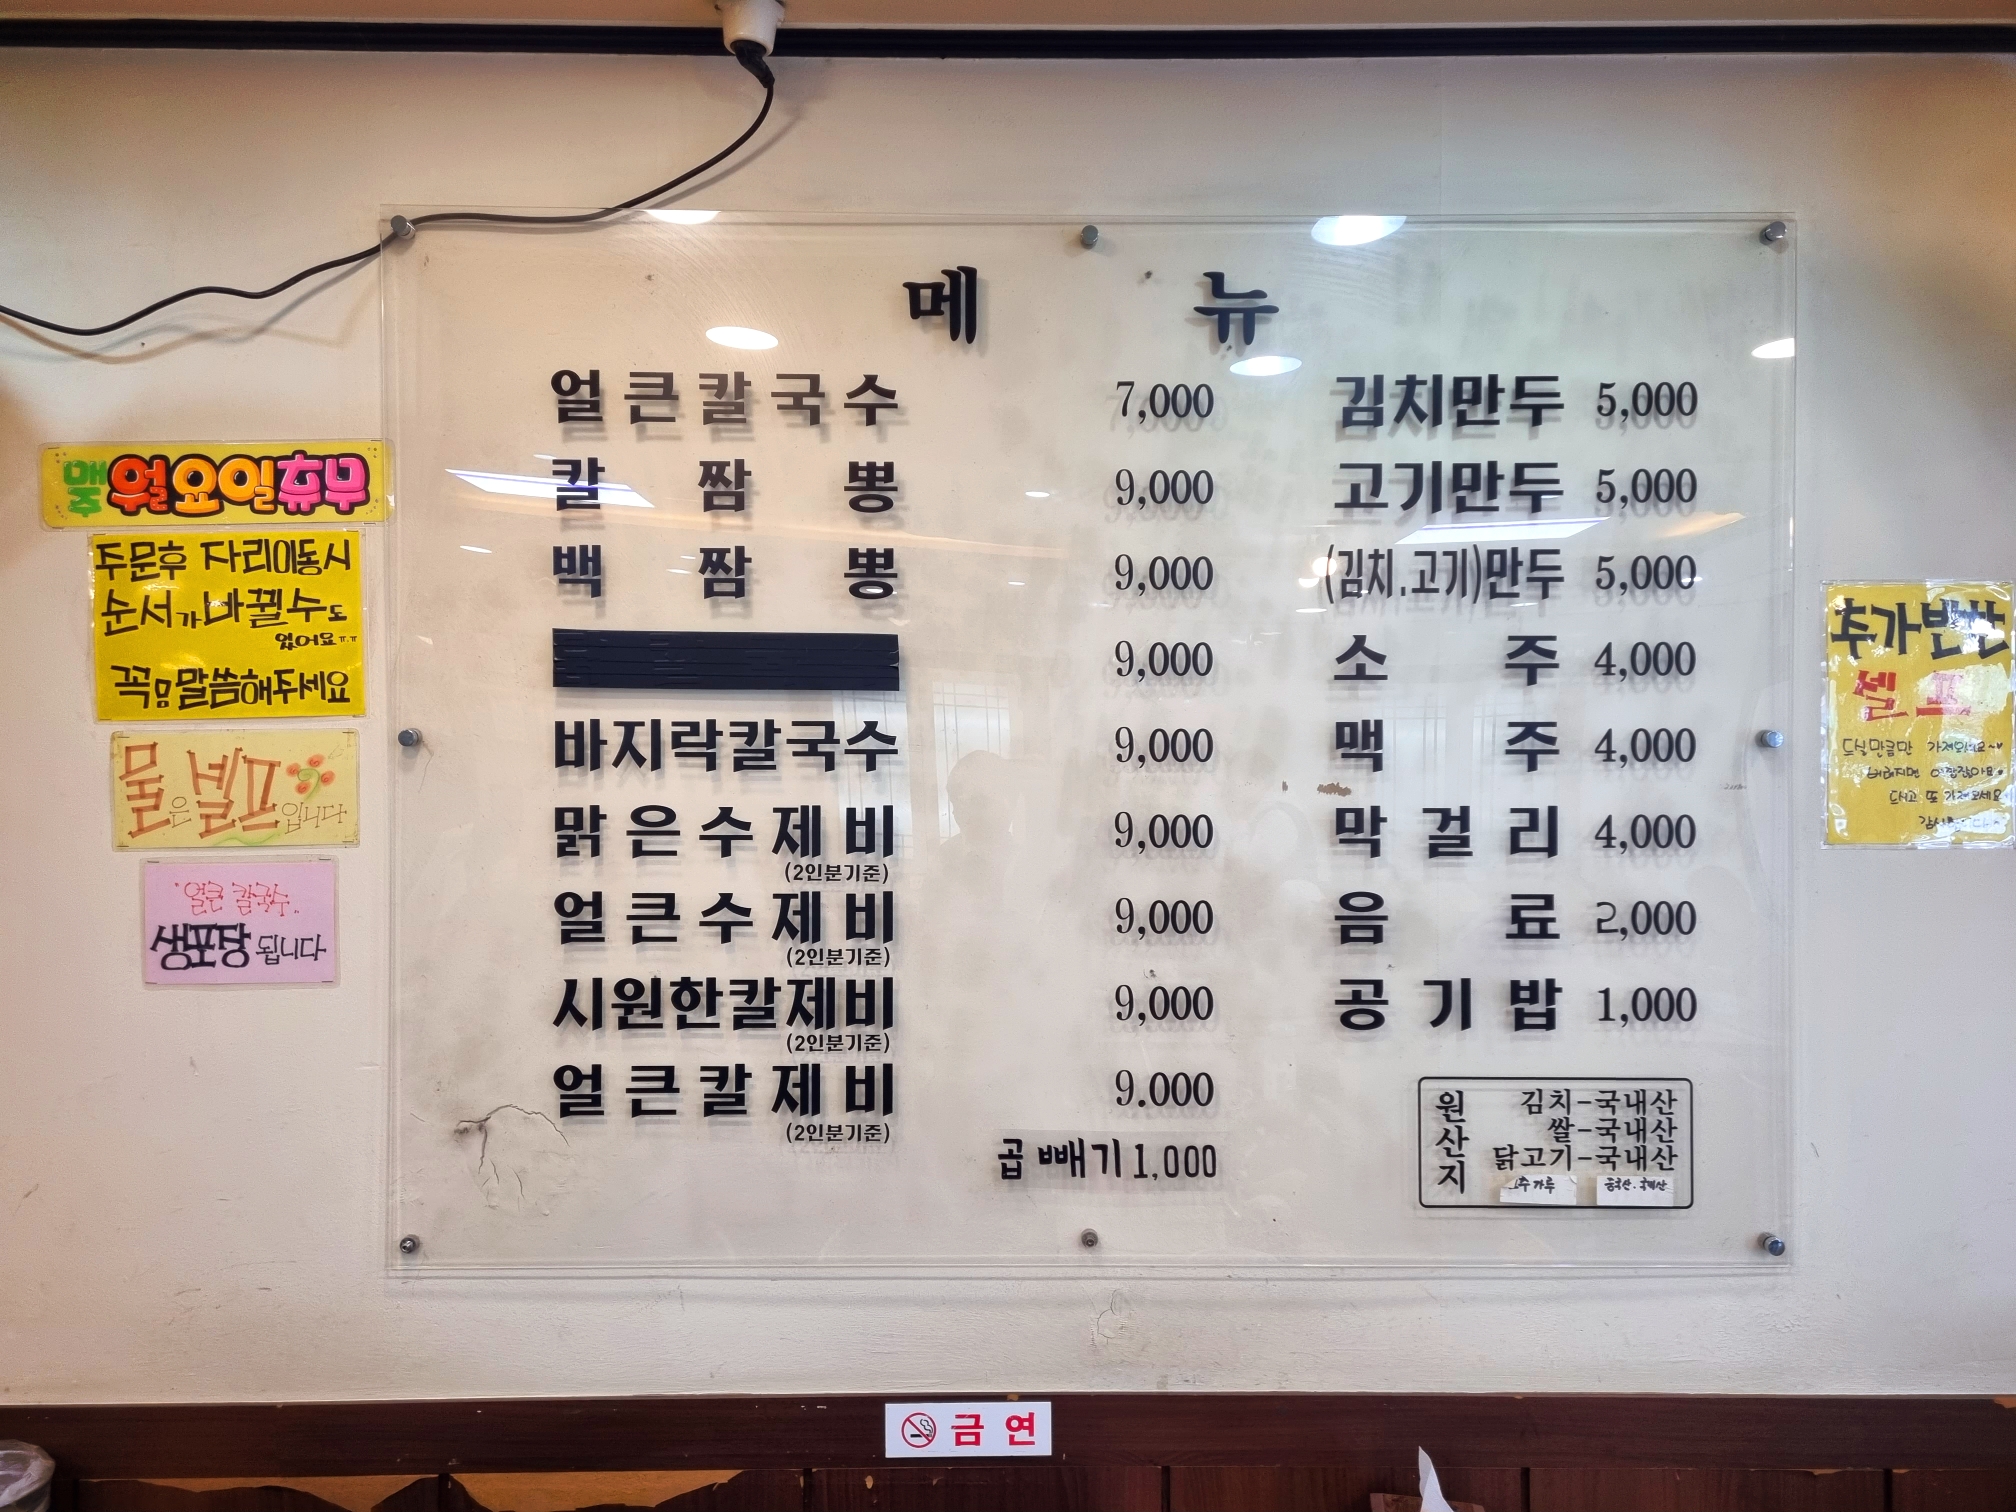 메 뉴
얼큰칼국수 7,000
칼짬뽕 9,000
백짬뽕 9,000
9,000
바지락칼국수 9,000
맑은수제비 9,000
(2인분기준)
얼큰수제비 9,000
(2인분기준)
시원한칼제비 9,000
(2인분기준)
얼큰칼제비 9.000
(2인분기준)
곱빼기 1,000
김치만두 5,000
고기만두 5,000
(김치.고기)만두 5,000
소주 4,000
맥주 4,000
막걸리 4,000
음료 2,000
공기밥 1,000
원산지
김치-국내산
쌀-국내산
닭고기-국내산
매주 월요일휴무
주문후 자리이동시
순서가 바뀔수도
있어요ㅠㅠ
꼭 말씀해주세요
물은 셀프입니다
얼큰 칼국수..
생포장 됩니다
추가반찬
셀프
드실만큼만 가져와요~
드시고 또 가져오세요
금연